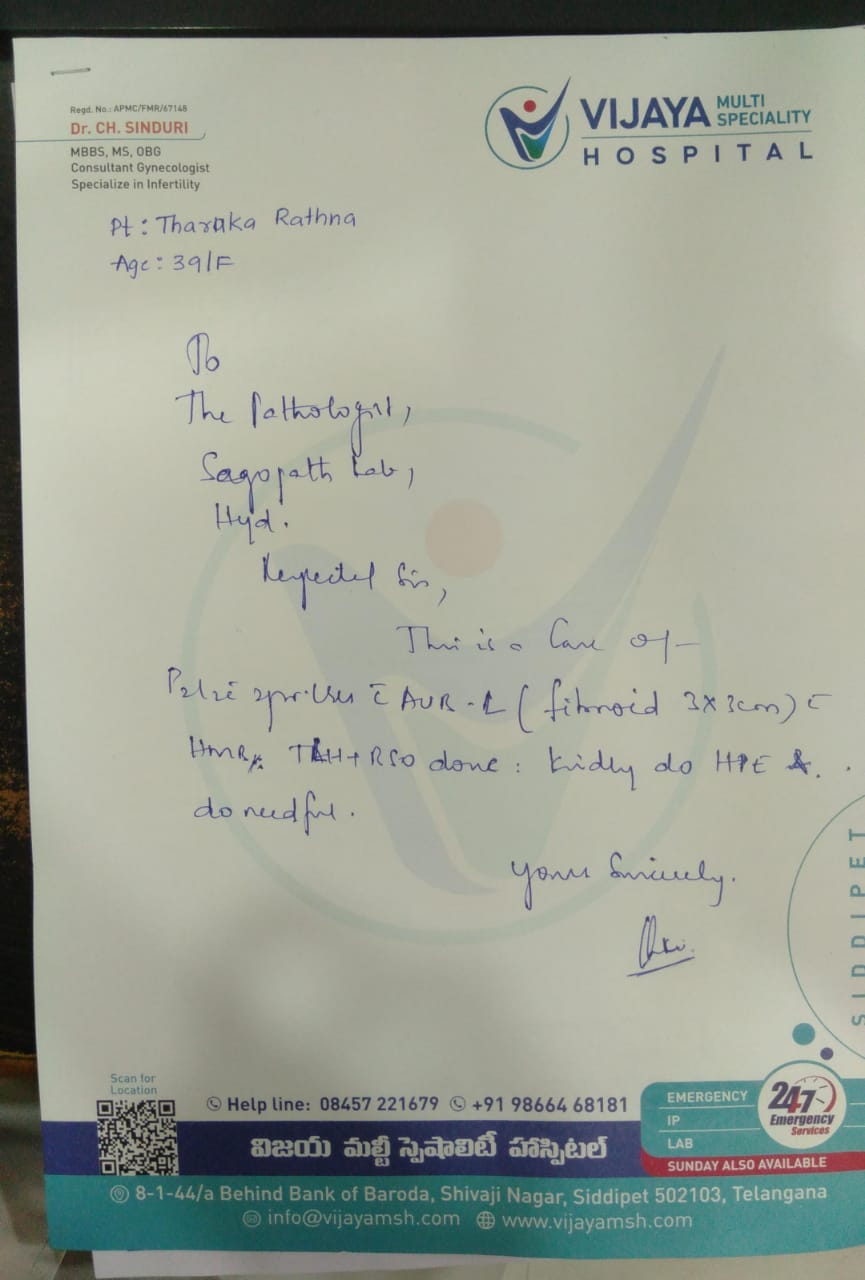 Regd. No.: APMC/FMR/67148
Dr. CH. SINDURI
MBBS, MS, OBG
Consultant Gynecologist
Specialize in Infertility
VIJAYA MULTI SPECIALITY
HOSPITAL
Pt: Tharaka Rathna
Age: 39/F
To
The Pathologist,
Sagepath Lab,
Hyd.
Respected Sir,
This is a Case of
AUB-L (fibroid 3x3cm) c̄
TAH+RSO done: kindly do HPE &
do needful.
Yours Sincerely.
SIDDIPET
Scan for
Location
Help line: 08457 221679 +91 98664 68181
EMERGENCY
IP
LAB
24/7
Emergency
Services
SUNDAY ALSO AVAILABLE
విజయ మల్టీ స్పెషాలిటీ హాస్పిటల్
8-1-44/a Behind Bank of Baroda, Shivaji Nagar, Siddipet 502103, Telangana
info@vijayamsh.com www.vijayamsh.com